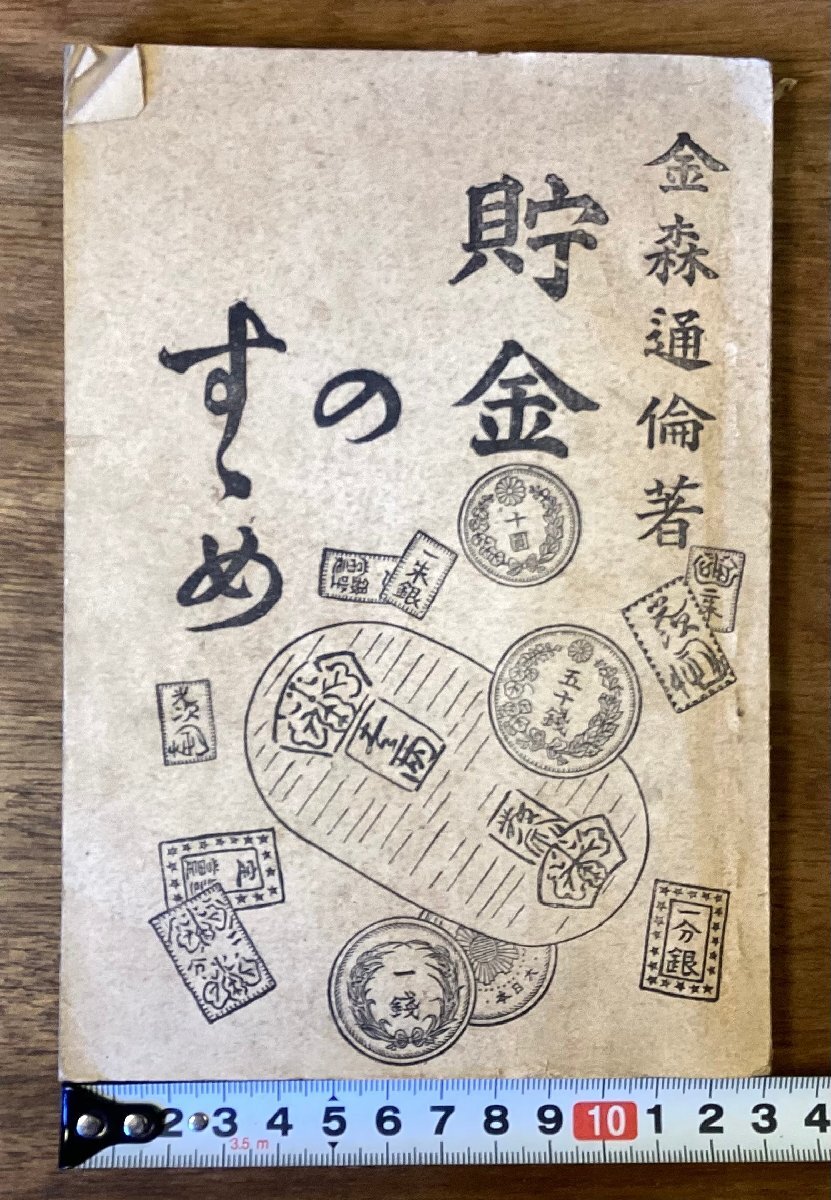 金森通倫著
貯金
の
すゝめ
十圓
一朱銀
五十錢
壹兩
一分銀
一錢
大日本
2 3 4 5 6 7 8 9 10 1 2 3 4
3.5 m